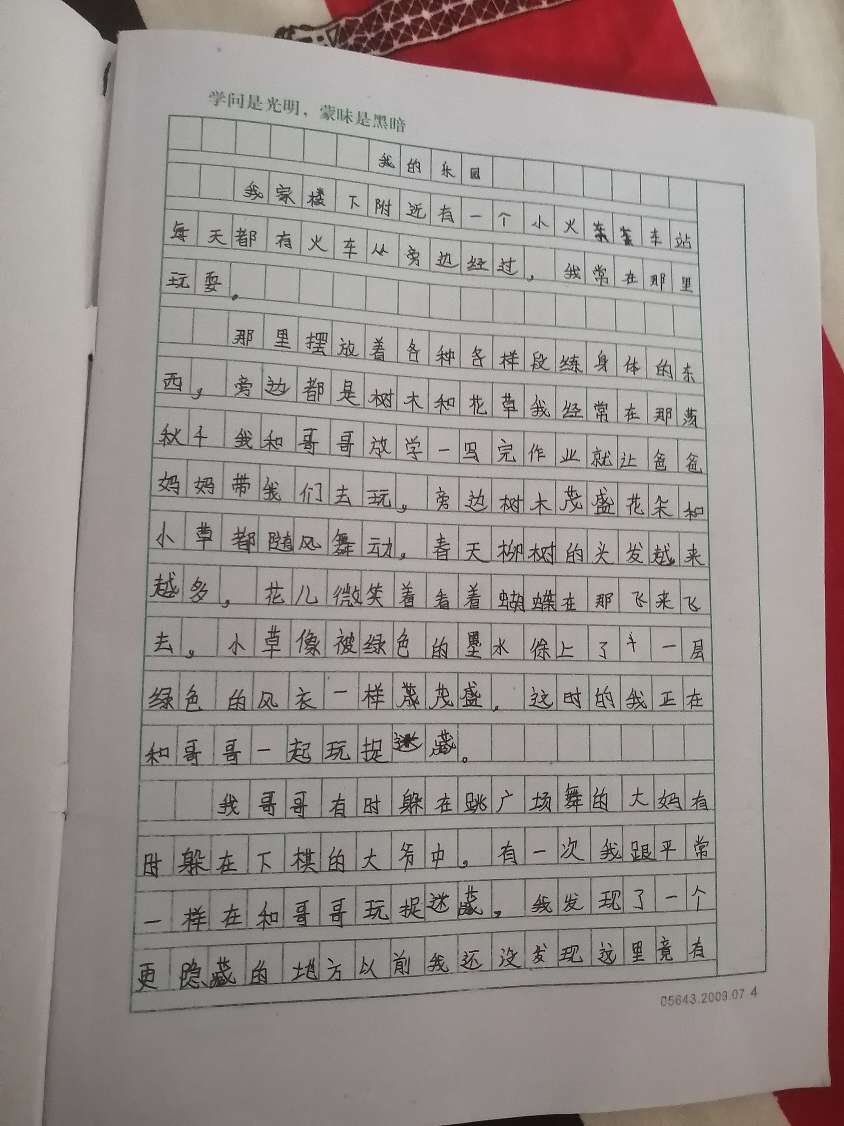 学问是光明，蒙昧是黑暗
我的乐园
我家楼下附近有一个小火车站
每天都有火车从旁边经过，我常在那里
玩耍。
那里摆放着各种各样段练身体的东
西，旁边都是树木和花草我经常在那荡
秋千我和哥哥放学一写完作业就让爸爸
妈妈带我们去玩，旁边树木茂盛花朵和
小草都随风舞动。春天柳树的头发越来
越多，花儿微笑着看着蝴蝶在那飞来飞
去，小草像被绿色的墨水徐上了千一层
绿色的风衣一样茂盛，这时的我正在
和哥哥一起玩捉迷藏。
我哥哥有时躲在跳广场舞的大妈有
时躲在下棋的大爷中，有一次我跟平常
一样在和哥哥玩捉迷藏，我发现了一个
更隐藏的地方以前我还没发现这里竟有
05643.2009.07 4